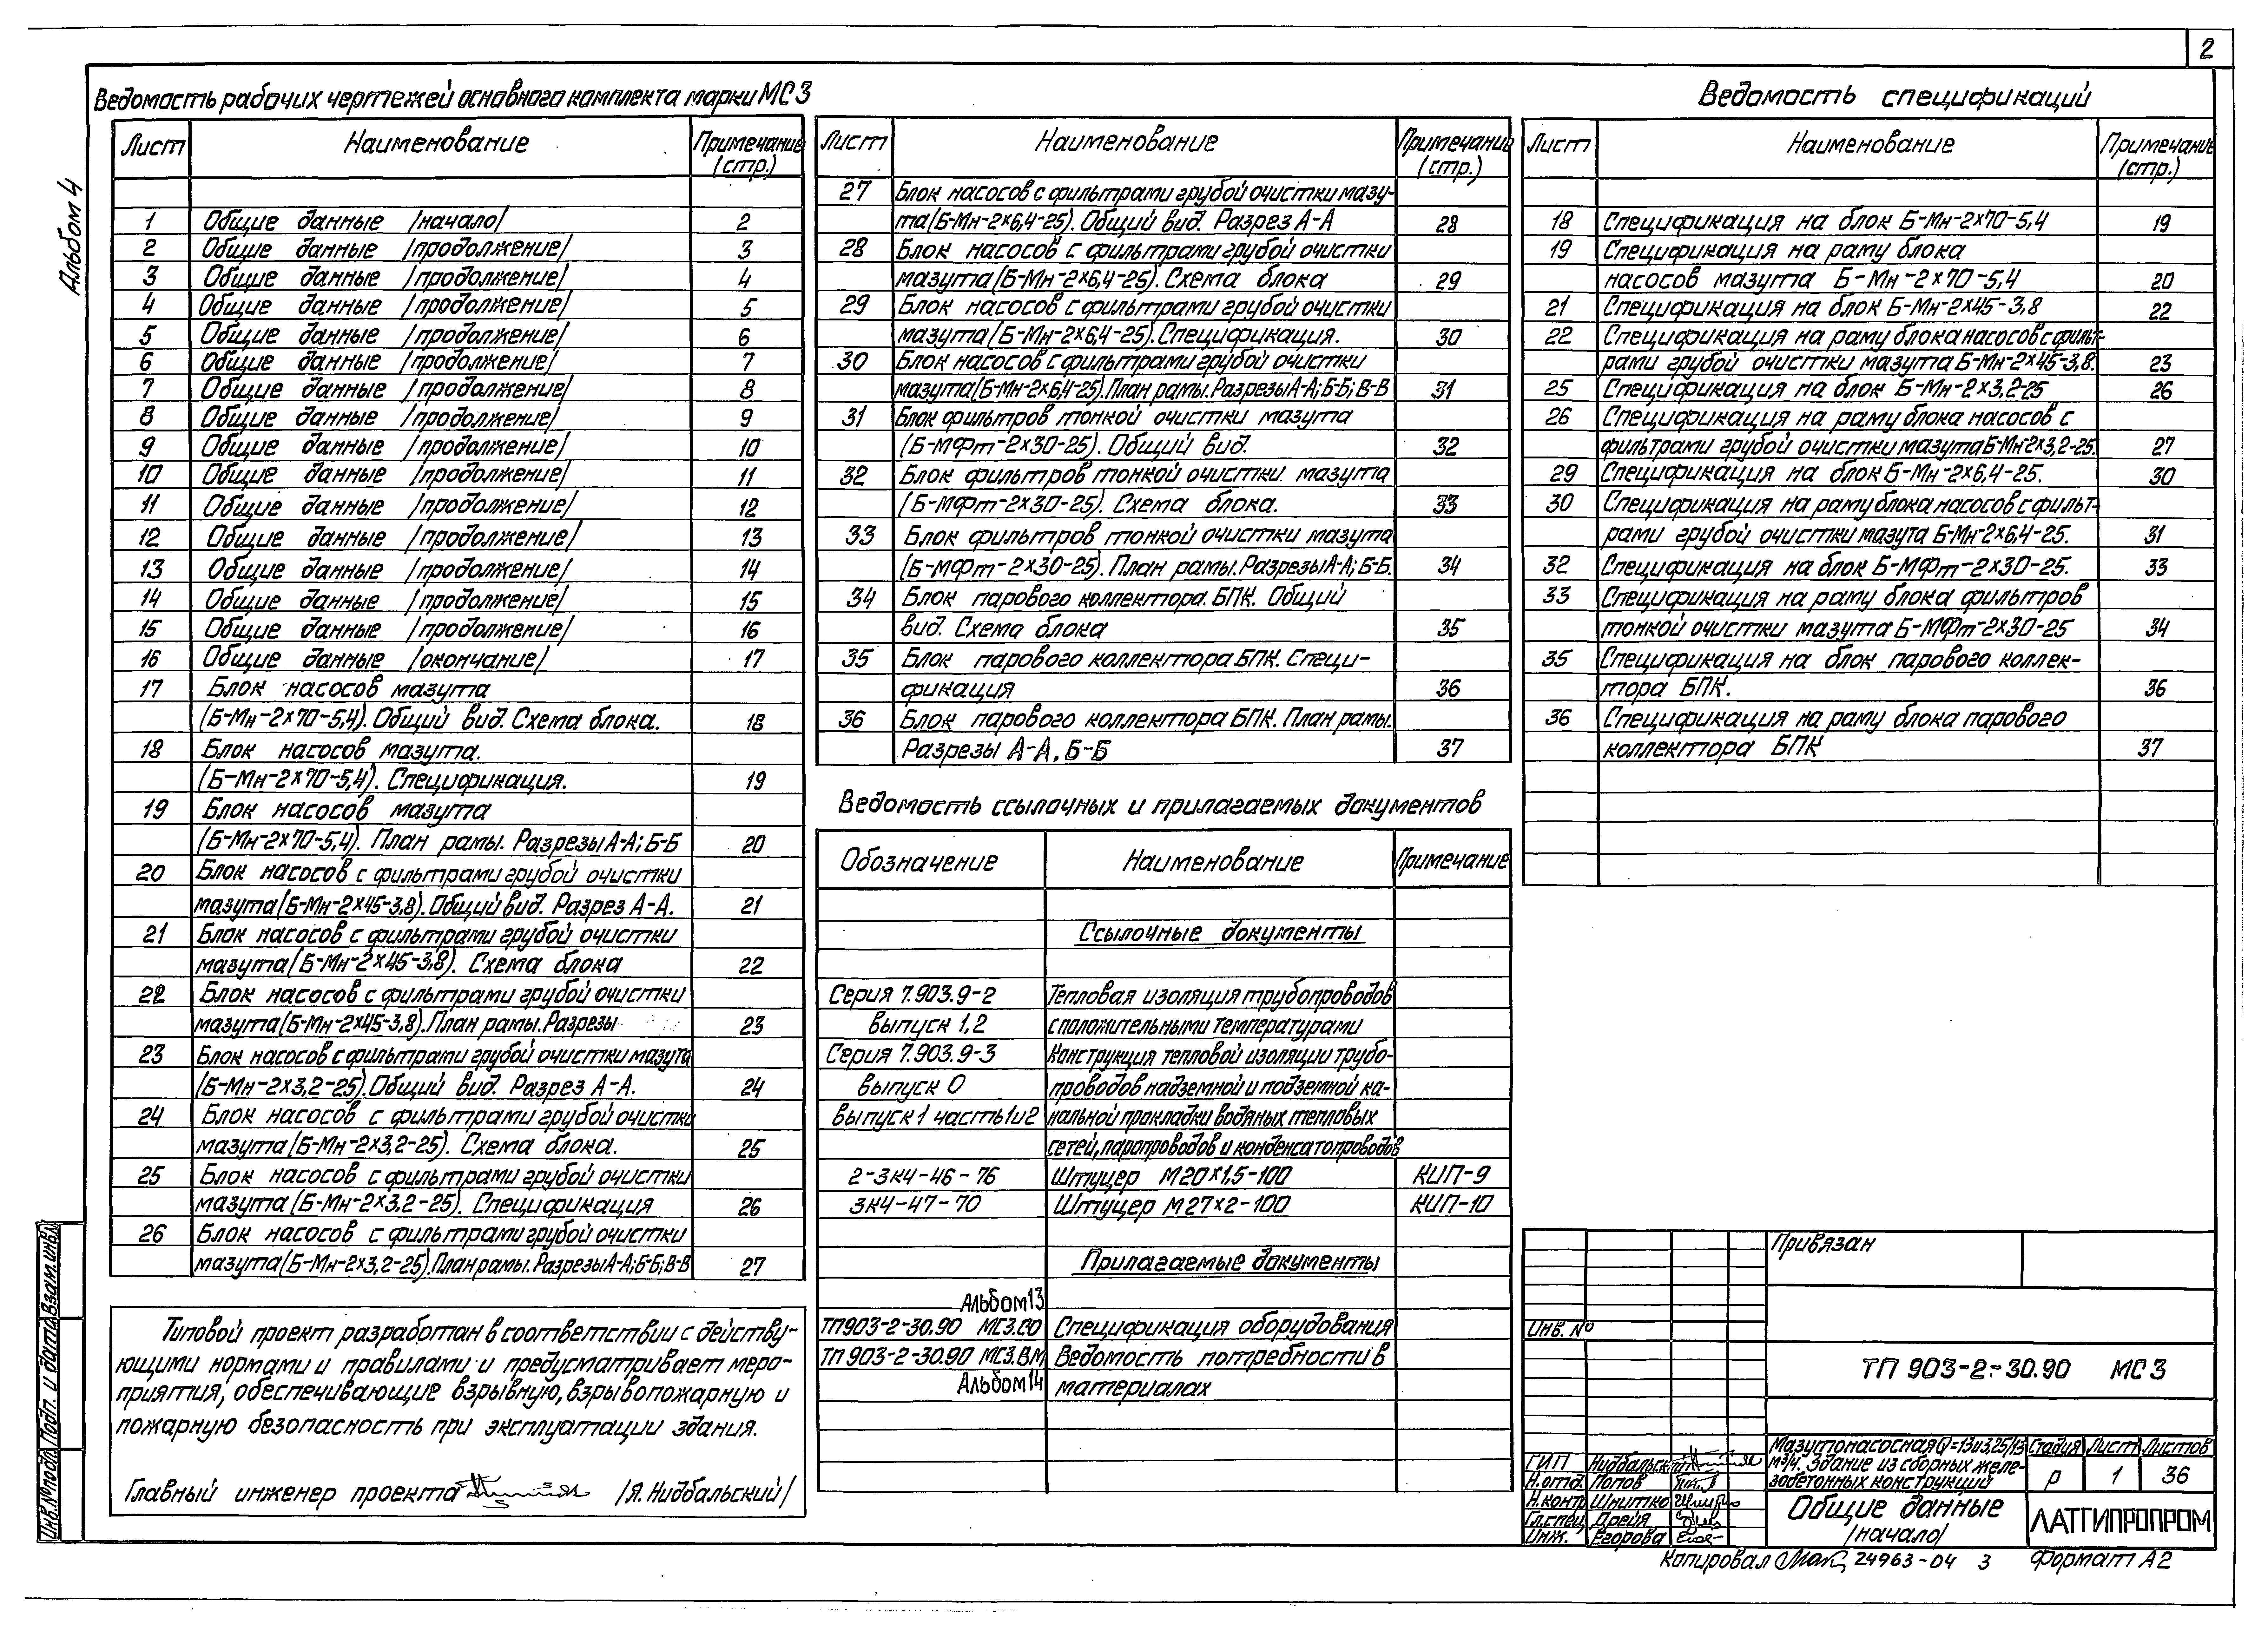 2
Альбом 4
Ведомость рабочих чертежей основного комплекта марки МС3
Лист Наименование Примечание (стр.)
1 Общие данные /начало/ 2
2 Общие данные /продолжение/ 3
3 Общие данные /продолжение/ 4
4 Общие данные /продолжение/ 5
5 Общие данные /продолжение/ 6
6 Общие данные /продолжение/ 7
7 Общие данные /продолжение/ 8
8 Общие данные /продолжение/ 9
9 Общие данные /продолжение/ 10
10 Общие данные /продолжение/ 11
11 Общие данные /продолжение/ 12
12 Общие данные /продолжение/ 13
13 Общие данные /продолжение/ 14
14 Общие данные /продолжение/ 15
15 Общие данные /продолжение/ 16
16 Общие данные /окончание/ 17
17 Блок насосов мазута
(Б-Мн-2×70-5,4). Общий вид. Схема блока. 18
18 Блок насосов мазута.
(Б-Мн-2×70-5,4). Спецификация. 19
19 Блок насосов мазута
(Б-Мн-2×70-5,4). План рамы. Разрезы А-А; Б-Б 20
20 Блок насосов с фильтрами грубой очистки
мазута (Б-Мн-2×45-3,8). Общий вид. Разрез А-А. 21
21 Блок насосов с фильтрами грубой очистки
мазута (Б-Мн-2×45-3,8). Схема блока 22
22 Блок насосов с фильтрами грубой очистки
мазута (Б-Мн-2×45-3,8). План рамы. Разрезы 23
23 Блок насосов с фильтрами грубой очистки мазута
(Б-Мн-2×3,2-25). Общий вид. Разрез А-А. 24
24 Блок насосов с фильтрами грубой очистки
мазута (Б-Мн-2×3,2-25). Схема блока. 25
25 Блок насосов с фильтрами грубой очистки
мазута (Б-Мн-2×3,2-25). Спецификация 26
26 Блок насосов с фильтрами грубой очистки
мазута (Б-Мн-2×3,2-25). План рамы. Разрезы А-А; Б-Б; В-В 27
Типовой проект разработан в соответствии с действу-
ющими нормами и правилами и предусматривает меро-
приятия, обеспечивающие взрывную, взрывопожарную и
пожарную безопасность при эксплуатации здания.
Главный инженер проекта /Я. Нидбальский/
Лист Наименование Примечание (стр.)
27 Блок насосов с фильтрами грубой очистки мазу-
та (Б-Мн-2×6,4-25). Общий вид. Разрез А-А 28
28 Блок насосов с фильтрами грубой очистки
мазута (Б-Мн-2×6,4-25). Схема блока 29
29 Блок насосов с фильтрами грубой очистки
мазута (Б-Мн-2×6,4-25). Спецификация. 30
30 Блок насосов с фильтрами грубой очистки
мазута (Б-Мн-2×6,4-25). План рамы. Разрезы А-А; Б-Б; В-В 31
31 Блок фильтров тонкой очистки мазута
(Б-МФт-2×30-25). Общий вид. 32
32 Блок фильтров тонкой очистки мазута
(Б-МФт-2×30-25). Схема блока. 33
33 Блок фильтров тонкой очистки мазута
(Б-МФт-2×30-25). План рамы. Разрезы А-А; Б-Б. 34
34 Блок парового коллектора БПК. Общий
вид. Схема блока 35
35 Блок парового коллектора БПК. Специ-
фикация 36
36 Блок парового коллектора БПК. План рамы.
Разрезы А-А, Б-Б 37
Ведомость ссылочных и прилагаемых документов
Обозначение Наименование Примечание
Ссылочные документы
Серия 7.903.9-2 Тепловая изоляция трубопроводов
выпуск 1,2 с положительными температурами
Серия 7.903.9-3 Конструкция тепловой изоляции трубо-
выпуск 0 проводов надземной и подземной ка-
выпуск 1 часть 1и2 нальной прокладки водяных тепловых
сетей, паропроводов и конденсатопроводов
2-3к4-46-76 Штуцер М20×1,5-100 КИП-9
3К4-47-70 Штуцер М27×2-100 КИП-10
Прилагаемые документы
Альбом 13
ТП903-2-30.90 МС3.СО Спецификация оборудования
ТП 903-2-30.90 МС3.ВМ Ведомость потребности в
Альбом 14 материалах
Ведомость спецификаций
Лист Наименование Примечание (стр.)
18 Спецификация на блок Б-Мн-2×70-5,4 19
19 Спецификация на раму блока
насосов мазута Б-Мн-2×70-5,4 20
21 Спецификация на блок Б-Мн-2×45-3,8 22
22 Спецификация на раму блока насосов с фильт-
рами грубой очистки мазута Б-Мн-2×45-3,8. 23
25 Спецификация на блок Б-Мн-2×3,2-25 26
26 Спецификация на раму блока насосов с
фильтрами грубой очистки мазута Б-Мн-2×3,2-25. 27
29 Спецификация на блок Б-Мн-2×6,4-25. 30
30 Спецификация на раму блока насосов с фильт-
рами грубой очистки мазута Б-Мн-2×6,4-25. 31
32 Спецификация на блок Б-МФт-2×30-25. 33
33 Спецификация на раму блока фильтров
тонкой очистки мазута Б-МФт-2×30-25 34
35 Спецификация на блок парового коллек-
тора БПК. 36
36 Спецификация на раму блока парового
коллектора БПК 37
Привязан
Инв. №
ТП 903-2-30.90 МС3
Мазутонасосная Q=13и3,25/13
м³/ч. Здание из сборных желе-
зобетонных конструкций
Стадия Лист Листов
Р 1 36
ГИП Нидбальский
Н.отд. Попов
Н.контр Шнитко
Гл.спец Дрейя
Инж. Егорова
Общие данные
/начало/
ЛАТГИПРОПРОМ
Копировал 24963-04 3 Формат А2
Инв.№подл. Подп. и дата Взам.инв.№